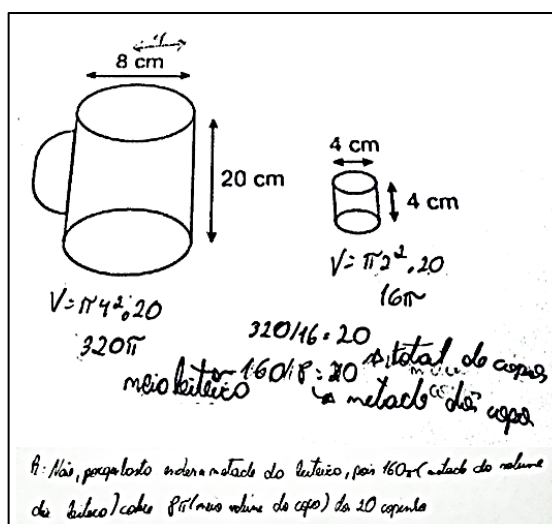 4
8 cm
20 cm
4 cm
4 cm
V = π4².20
320π
V = π2².20
16π
320/16 = 20 ↳ total de copos
meio leiteiro 160/8 = 20 ↳ metade dos copo
R: Não, porque basta encher a metade do leiteiro, pois 160π (metade do volume
do leiteiro) cobre 8π (meio volume do copo) dos 20 copinhos